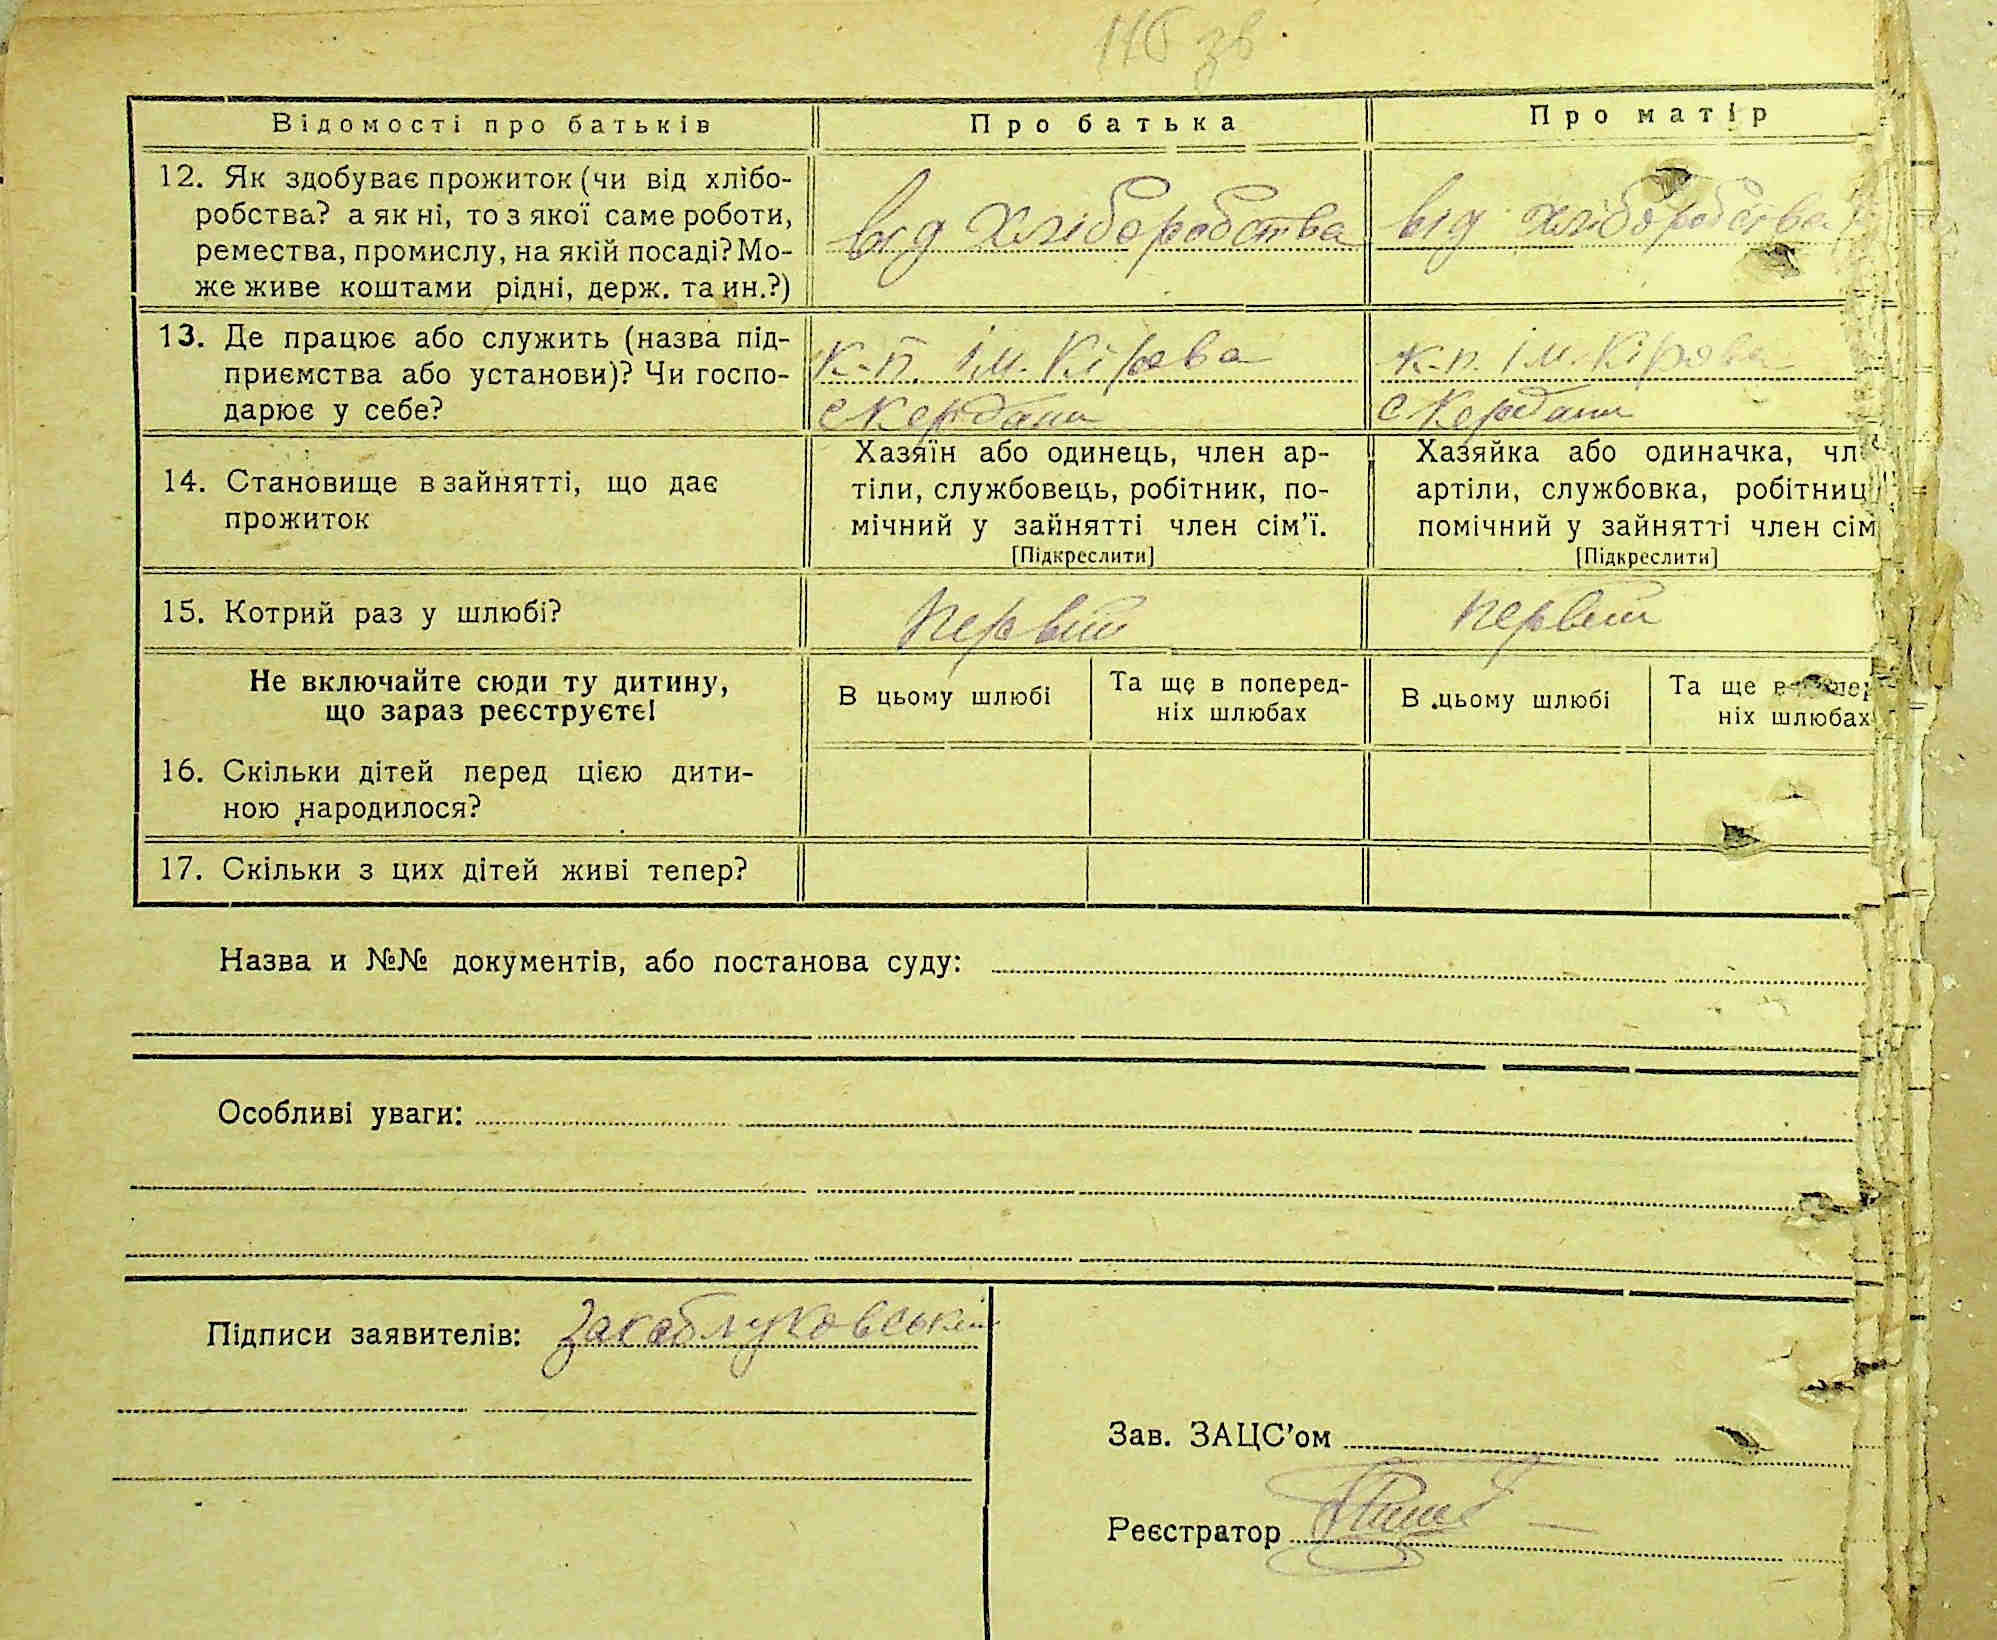 116 зв
Відомості про батьків Про батька Про матір
12. Як здобуває прожиток (чи від хлібо-
робства? а як ні, то з якої саме роботи,
ремества, промислу, на якій посаді? Мо-
же живе коштами рідні, держ. та ин.?)
від хліборобства від хліборобства
13. Де працює або служить (назва під-
приємства або установи)? Чи госпо-
дарює у себе?
к.п. ім. Кірова к.п. ім. Кірова
с Кердани с Кердани
14. Становище в зайнятті, що дає
прожиток
Хазяїн або одинець, член ар-
тіли, службовець, робітник, по-
мічний у зайнятті член сім'ї.
[Підкреслити]
Хазяйка або одиначка, чл
артіли, службовка, робітниц
помічний у зайнятті член сім
[Підкреслити]
15. Котрий раз у шлюбі? первий первий
Не включайте сюди ту дитину,
що зараз реєструєте!
В цьому шлюбі
Та ще в поперед-
ніх шлюбах
В цьому шлюбі
Та ще в
ніх шлюбах
16. Скільки дітей перед цією дити-
ною народилося?
17. Скільки з цих дітей живі тепер?
Назва и №№ документів, або постанова суду:
Особливі уваги:
Підписи заявителів: Закаблуковський
Зав. ЗАЦС'ом
Реєстратор